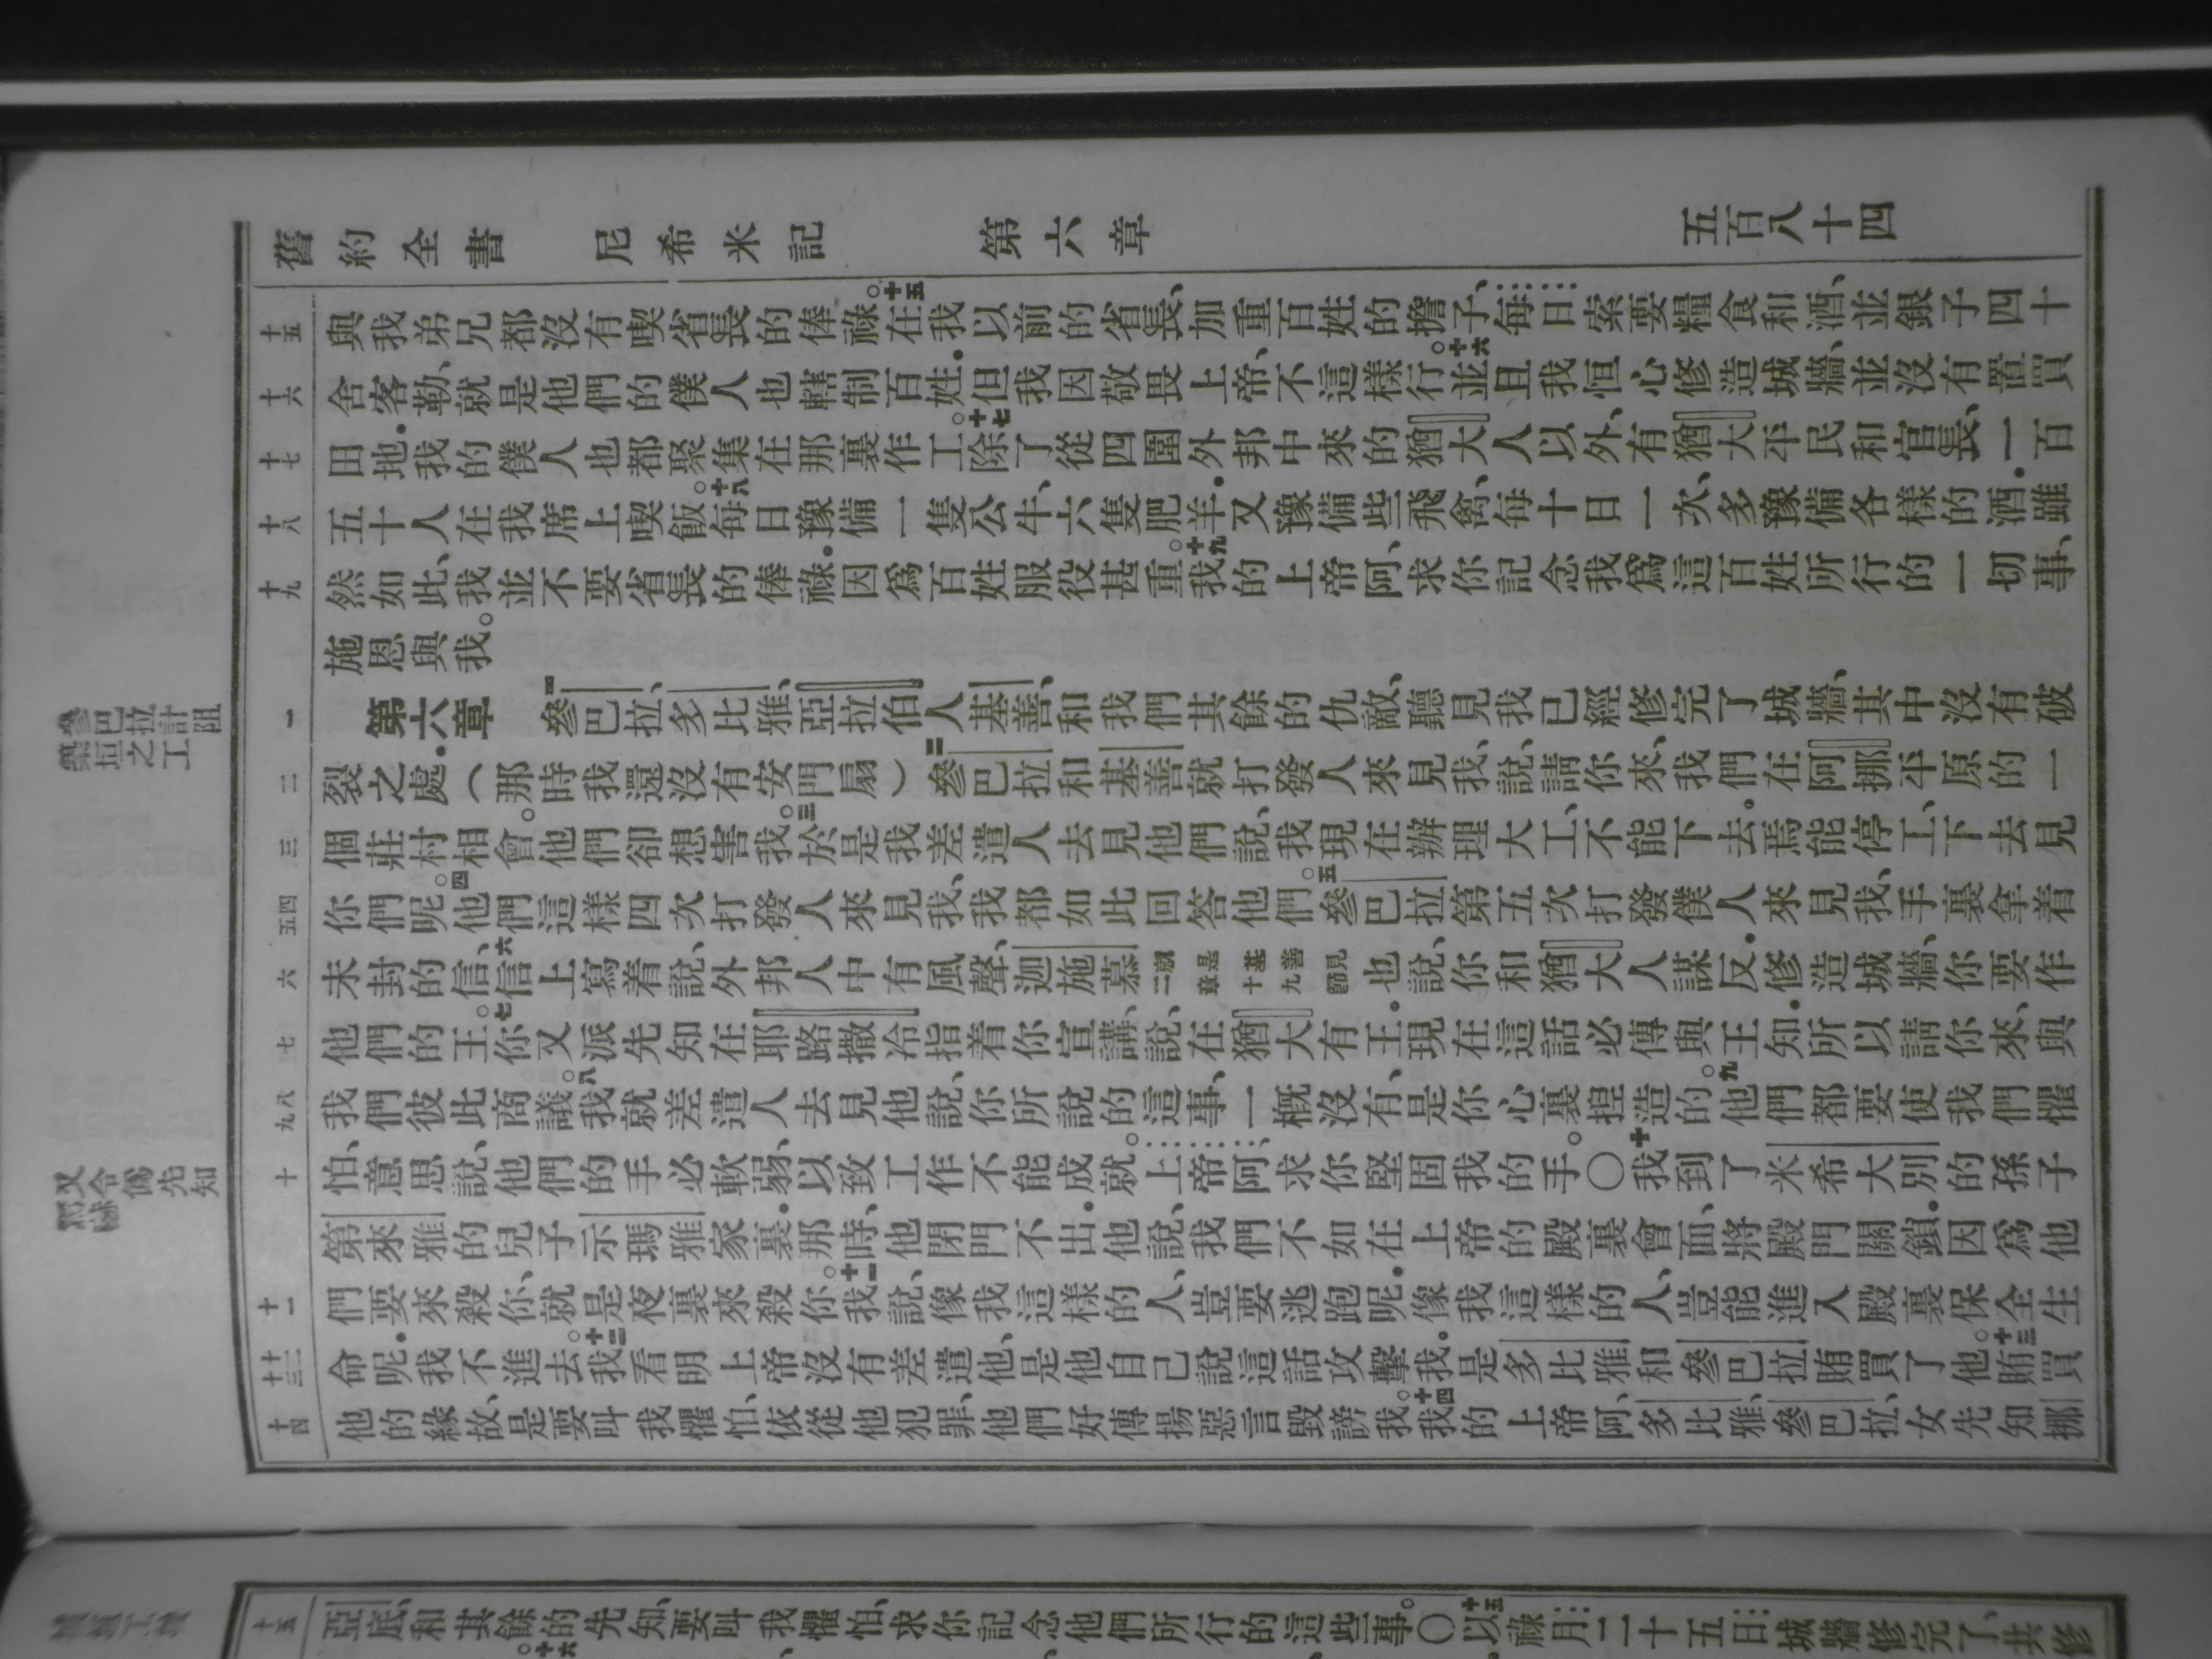 舊約全書 尼希米記 第六章 五百八十四
十五 與我弟兄都沒有喫省長的俸祿。十五在我以前的省長、加重百姓的擔子、每日索要糧食和酒、並銀子四十
十六 舍客勒、就是他們的僕人也轄制百姓．但我因敬畏上帝、不這樣行。十六並且我恒心修造城牆、並沒有置買
十七 田地．我的僕人也都聚集在那裏作工。十七除了從四圍外邦中來的猶大人以外、有猶大平民和官長、一百
十八 五十人在我席上喫飯。十八每日豫備一隻公牛、六隻肥羊．又豫備些飛禽、每十日一次、多豫備各樣的酒．雖
十九 然如此、我並不要省長的俸祿．因爲百姓服役甚重。十九我的上帝阿、求你記念我爲這百姓所行的一切事、
施恩與我。
一 第六章 一參巴拉、多比雅、亞拉伯人基善、和我們其餘的仇敵、聽見我已經修完了城牆、其中沒有破
二 裂之處．（那時我還沒有安門扇）二參巴拉和基善就打發人來見我、說、請你來、我們在阿挪平原的一
三 個莊村相會。他們卻想害我。三於是我差遣人去見他們說、我現在辦理大工、不能下去．焉能停工、下去見
四五 你們呢。四他們這樣四次打發人來見我、我都如此回答他們。五參巴拉第五次打發僕人來見我、手裏拿着
六 未封的信、六信上寫着說、外邦人中有風聲、迦施慕就是基善見二章十九節也說、你和猶大人謀反．修造城牆、你要作
七 他們的王。七你又派先知在耶路撒冷指着你宣講、說、在猶大有王．現在這話必傳與王知．所以請你來、與
八九 我們彼此商議。八我就差遣人去見他說、你所說的這事、一概沒有、是你心裏揑造的。九他們都要使我們懼
十 怕、意思說、他們的手必軟弱、以致工作不能成就。上帝阿、求你堅固我的手。〇十我到了米希大別的孫子
第來雅的兒子示瑪雅家裏．那時、他閉門不出．他說、我們不如在上帝的殿裏會面、將殿門關鎖．因爲他
十一 們要來殺你、就是夜裏來殺你。十一我說、像我這樣的人、豈要逃跑呢．像我這樣的人、豈能進入殿裏保全生
十二十三 命呢．我不進去。十二我看明上帝沒有差遣他、是他自己說這話攻擊我．是多比雅和參巴拉賄買了他。十三賄買
十四 他的緣故、是要叫我懼怕、依從他犯罪、他們好傳揚惡言毀謗我。十四我的上帝阿、多比雅、參巴拉、女先知挪
參巴拉計阻
築垣之工
又令僞先知
十五 亞底、和其餘的先知、要叫我懼怕、求你記念他們所行的這些事。〇十五以祿月二十五日、城牆修完了、共修